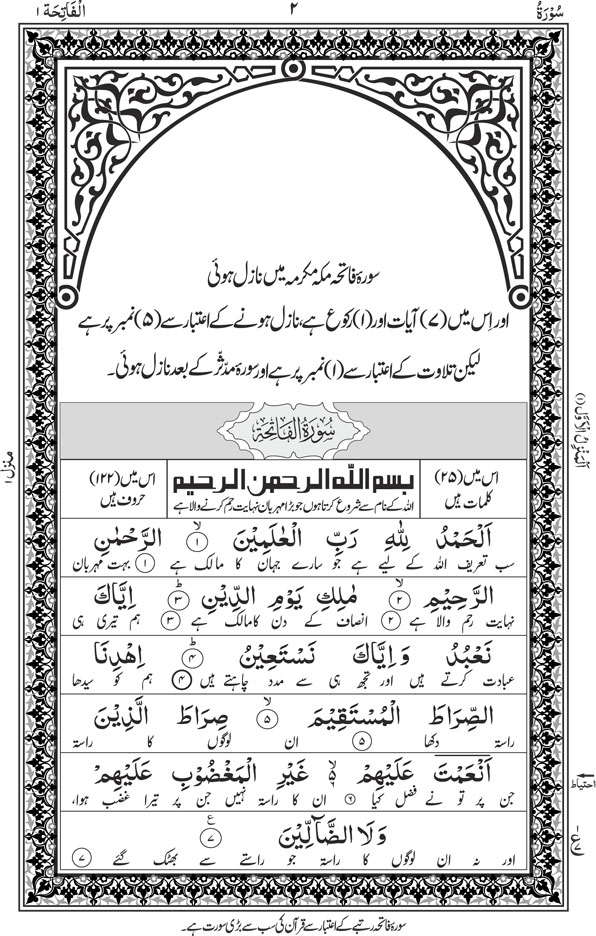 سُوْرَةُ ٢ اَلْفَاتِحَة ١
سورۂ فاتحہ مکہ مکرمہ میں نازل ہوئی
اور اِس میں (۷) آیات اور (۱) رکوع ہے، نازل ہونے کے اعتبار سے (۵) نمبر پر ہے
لیکن تلاوت کے اعتبار سے (۱) نمبر پر ہے اور سورۂ مدّثّر کے بعد نازل ہوئی۔
سُوْرَةُ الْفَاتِحَة
اس میں (۲۵)
کلمات ہیں
بسم الله الرحمن الرحيم
اللہ کے نام سے شروع کرتا ہوں جو بڑا مہربان نہایت رحم کرنے والا ہے
اس میں (۱۲۲)
حروف ہیں
اَلْحَمْدُ لِلّٰهِ رَبِّ الْعٰلَمِيْنَ ۙ﴿١﴾ الرَّحْمٰنِ
سب تعریف اللہ کے لیے ہے جو سارے جہان کا مالک ہے ① بہت مہربان
الرَّحِيْمِ ۙ﴿٢﴾ مٰلِكِ يَوْمِ الدِّيْنِ ؕ﴿٣﴾ اِيَّاكَ
نہایت رحم والا ہے ② انصاف کے دن کا مالک ہے ③ ہم تیری ہی
نَعْبُدُ وَ اِيَّاكَ نَسْتَعِيْنُ ؕ﴿٤﴾ اِهْدِنَا
عبادت کرتے ہیں اور تجھ ہی سے مدد چاہتے ہیں ④ ہم کو سیدھا
الصِّرَاطَ الْمُسْتَقِيْمَ ۙ﴿٥﴾ صِرَاطَ الَّذِيْنَ
راستہ دکھا ⑤ ان لوگوں کا راستہ
اَنْعَمْتَ عَلَيْهِمْ ۙ۬ غَيْرِ الْمَغْضُوْبِ عَلَيْهِمْ
جن پر تو نے فضل کیا ⑥ ان کا راستہ نہیں جن پر تیرا غضب ہوا،
وَلَا الضَّآلِّيْنَ ﴿٧﴾ ع
اور نہ ان لوگوں کا راستہ جو راستے سے بھٹک گئے ⑦
سورۂ فاتحہ رتبے کے اعتبار سے قرآن کی سب سے بڑی سورت ہے۔
اَلْمَنْزِلُ الْاَوَّلُ (۱)
منزل ۱
احتیاط